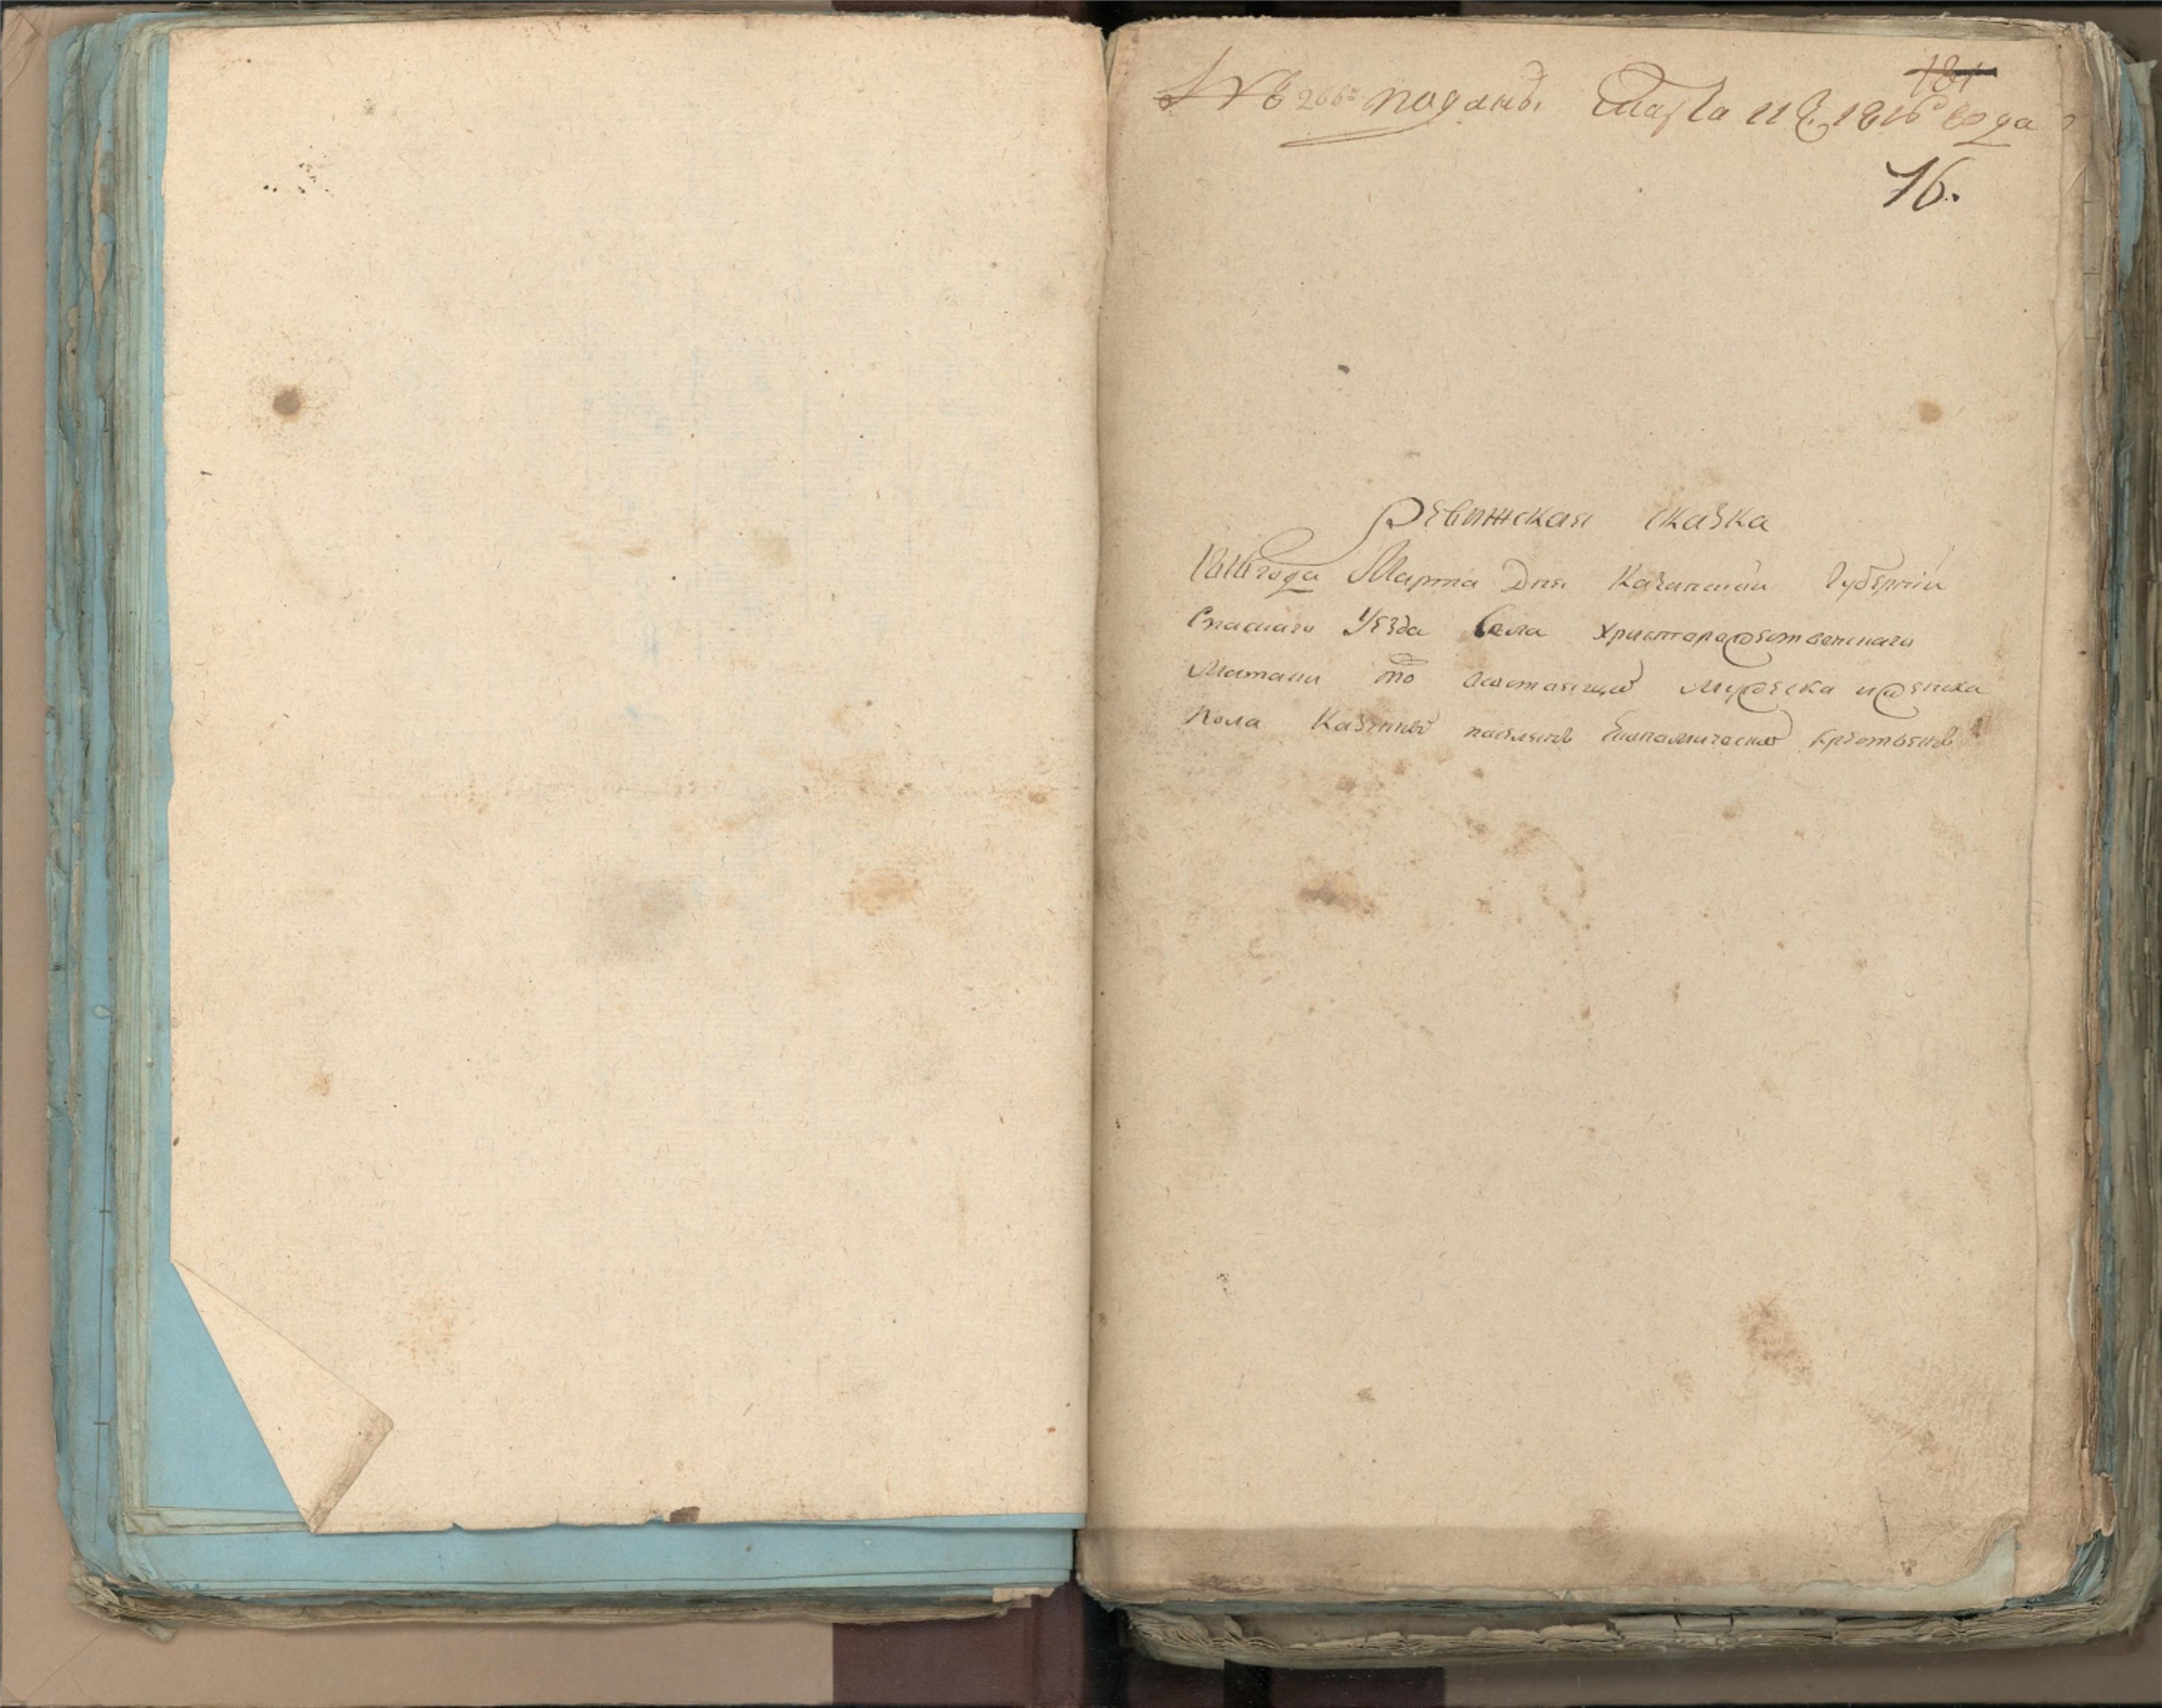 № 266 поданы Марта 11 г. 1816 года
181
16.
Ревижская сказка
1816 года Марта Дня Казанской Губернии
Спаскаго Уезда Села Христорождественскаго
Матаки то состоящих мужеска и женска
Пола Казенных Економических крестьянъ